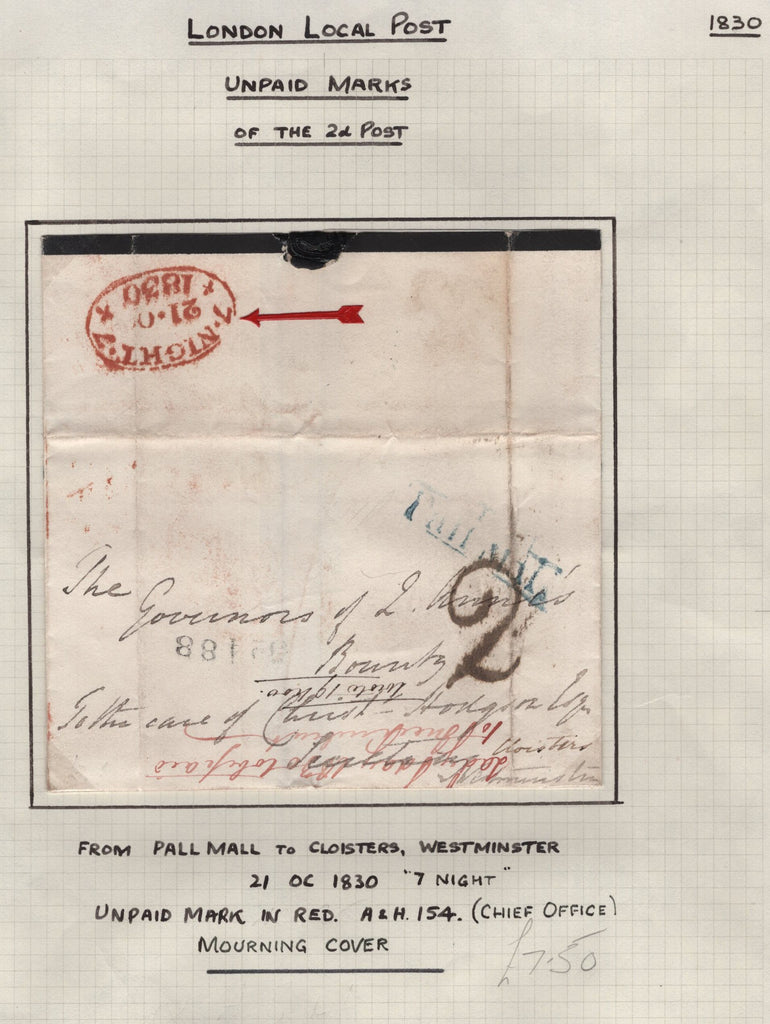 LONDON LOCAL POST
1830
UNPAID MARKS
OF THE 2d POST
7·NIGHT·7
21·O
1830
Pall Mall
The
Governors of Q. Anne's
2
Bounty
To the care of Christ Hodgson Esq
Cloisters
Westminster
FROM PALL MALL TO CLOISTERS, WESTMINSTER
21 OC 1830 "7 NIGHT"
UNPAID MARK IN RED. A&H. 154. (CHIEF OFFICE)
MOURNING COVER
£7·50